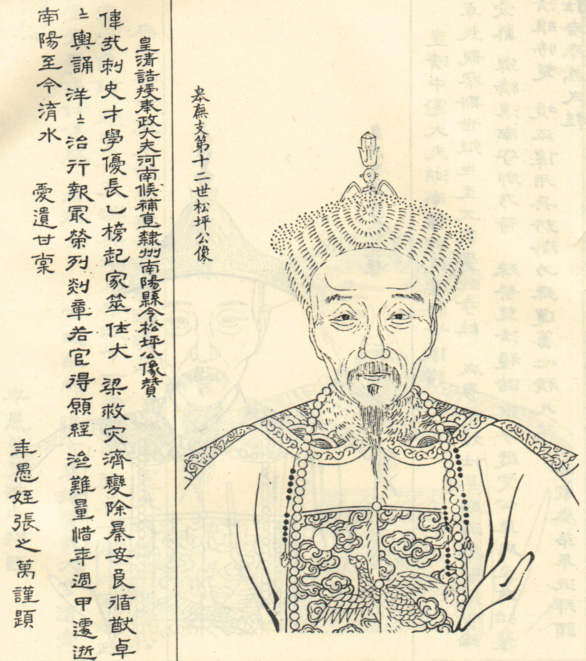 皋蕪支第十二世松坪公像
皇清誥授奉政大夫河南候補直隸州南陽縣令松坪公像贊
偉哉刺史才學優長乙榜起家筮仕大 梁救灾濟變除暴安良循猷卓
〻輿誦洋〻治行報最榮列剡章若官得願經 難量惜年週甲遽逝
南陽至今淯水 愛遺甘棠
年愚姪張之萬謹題